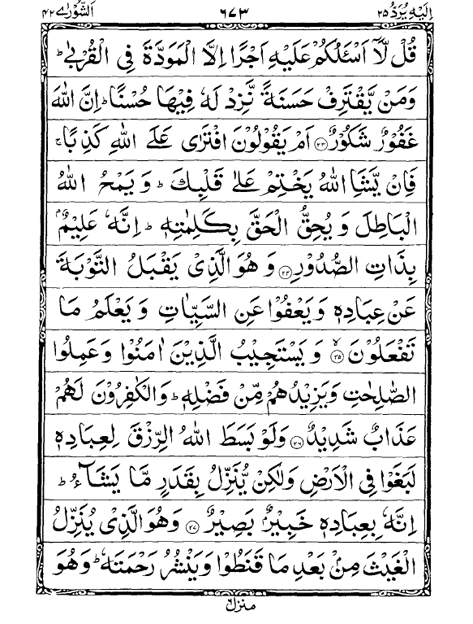 اِلَيْهِ يُرَدُّ ٢٥ ٦٧٣ اَلشُّوْرٰى ٤٢
قُلْ لَّاۤ اَسْـَٔلُكُمْ عَلَيْهِ اَجْرًا اِلَّا الْمَوَدَّةَ فِى الْقُرْبٰىؕ
وَمَنْ يَّقْتَرِفْ حَسَنَةً نَّزِدْ لَهٗ فِيْهَا حُسْنًاؕ اِنَّ اللّٰهَ
غَفُوْرٌ شَكُوْرٌ ۝٢٣ اَمْ يَقُوْلُوْنَ افْتَرٰى عَلَى اللّٰهِ كَذِبًاۚ
فَاِنْ يَّشَاِ اللّٰهُ يَخْتِمْ عَلٰى قَلْبِكَؕ وَ يَمْحُ اللّٰهُ
الْبَاطِلَ وَ يُحِقُّ الْحَقَّ بِكَلِمٰتِهٖؕ اِنَّهٗ عَلِيْمٌۢ
بِذَاتِ الصُّدُوْرِ ۝٢٤ وَ هُوَ الَّذِىْ يَقْبَلُ التَّوْبَةَ
عَنْ عِبَادِهٖ وَ يَعْفُوْا عَنِ السَّيِّاٰتِ وَ يَعْلَمُ مَا
تَفْعَلُوْنَۙ ۝٢٥ وَ يَسْتَجِيْبُ الَّذِيْنَ اٰمَنُوْا وَ عَمِلُوا
الصّٰلِحٰتِ وَيَزِيْدُهُمْ مِّنْ فَضْلِهٖؕ وَالْكٰفِرُوْنَ لَهُمْ
عَذَابٌ شَدِيْدٌ ۝٢٦ وَلَوْ بَسَطَ اللّٰهُ الرِّزْقَ لِعِبَادِهٖ
لَبَغَوْا فِى الْاَرْضِ وَلٰكِنْ يُّنَزِّلُ بِقَدَرٍ مَّا يَشَآءُؕ
اِنَّهٗ بِعِبَادِهٖ خَبِيْرٌۢ بَصِيْرٌ ۝٢٧ وَهُوَ الَّذِىْ يُنَزِّلُ
الْغَيْثَ مِنْۢ بَعْدِ مَا قَنَطُوْا وَيَنْشُرُ رَحْمَتَهٗؕ وَهُوَ
منزل ٦